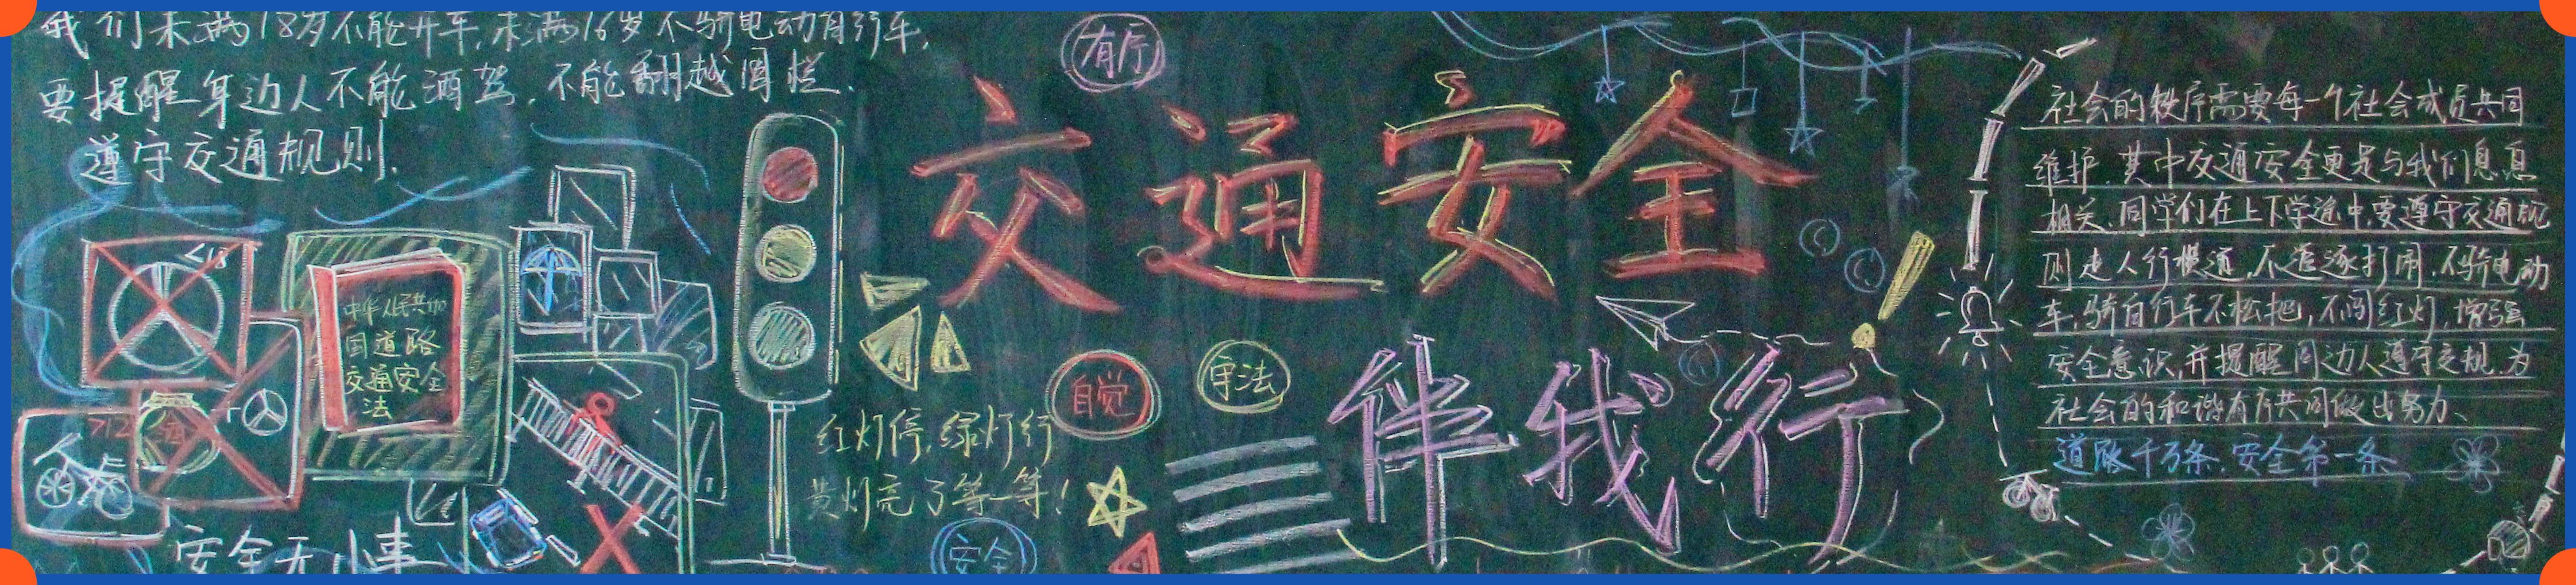 我们未满18岁不能开车,未满16岁不骑电动自行车,
要提醒身边人不能酒驾,不能翻越围栏.
遵守交通规则.
<18
中华人民共和
国道路
交通安全
法
>12
安全无小事
有序
交通安全
伴我行
自觉
守法
红灯停,绿灯行
黄灯亮了等一等!
安全
社会的秩序需要每一个社会成员共同
维护.其中交通安全更是与我们息息
相关.同学们在上下学途中,要遵守交通规
则走人行横道,不追逐打闹.不骑电动
车,骑自行车不松把,不闯红灯.增强
安全意识,并提醒周边人遵守交规.为
社会的和谐有序共同做出努力、
道路千万条.安全第一条